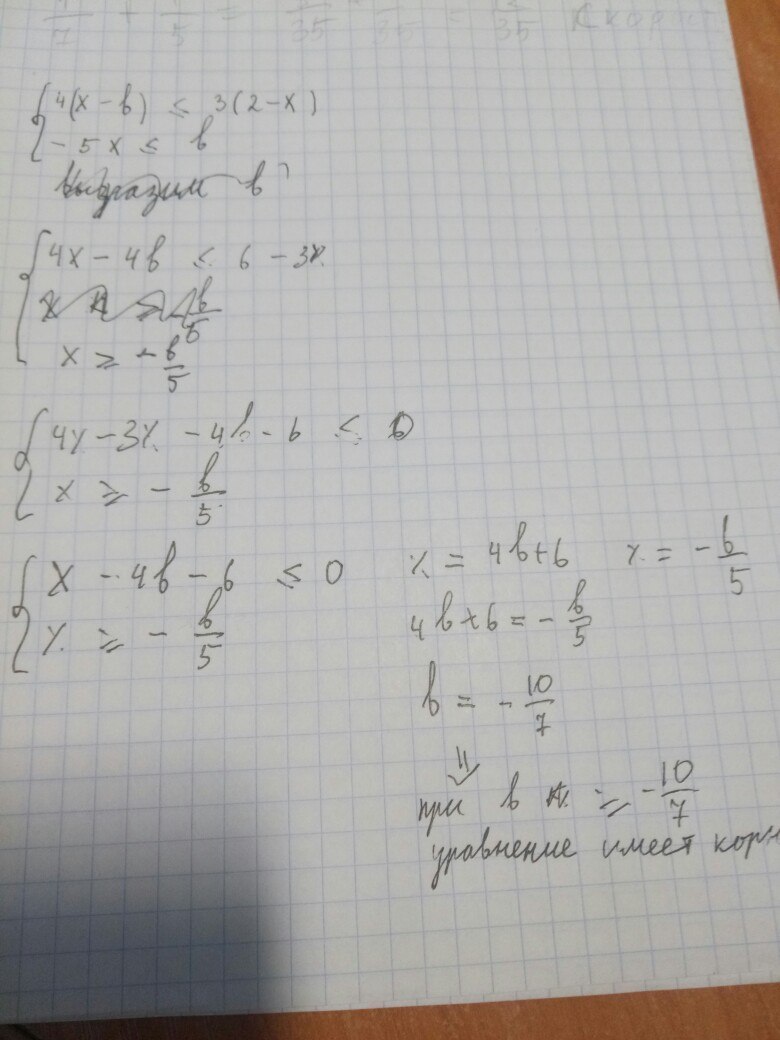 4(x - b) ≤ 3(2 - x)
- 5x ≤ b
Выразим b
4x - 4b ≤ 6 - 3x
x ≥ - b/5
4x - 3x - 4b - 6 ≤ 0
x ≥ - b/5
x - 4b - 6 ≤ 0
x ≥ - b/5
x = 4b+6 x = - b/5
4b+6 = - b/5
b = - 10/7
⇓
при b ≥ - 10/7
уравнение имеет корн